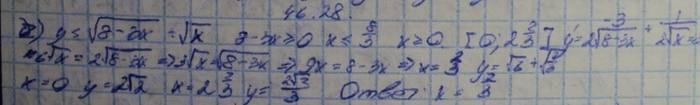 46.28.
y = √(8-3x) + √x 8-3x ≥ 0 x ≤ 8/3 x ≥ 0 [0; 2 2/3] y' = -3/(2√(8-3x)) + 1/(2√x) = 0
6√x = 2√(8-3x) => 3√x = √(8-3x) => 9x = 8-3x => x = 2/3 y =
x = 0 y = 2√2 x = 2 2/3 y = Ответ: x =